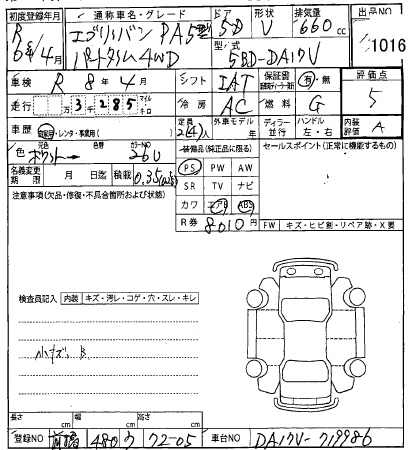 初度登録年月 通称車名・グレード ドア 形状 排気量 出品NO
R 6年/4月 エブリイバン PA 5型 5D V 660cc 1016
パートタイム4WD 型式 5BD-DA17V
車検 R 8年 4月 シフト IAT 保証書 有・無 評価点
走行 万3千285 マイル キロ 冷房 AC 燃料 G 5
車歴 自家用・レンタ・事業用( ) 定員 2(4)人 外車モデル 年 ディーラー・並行 ハンドル 左・右 内装評価 A
色 元色 ホワイト→ 色替 カラーNO 26U 装備品(純正品に限る) セールスポイント(正常に機能するもの)
名義変更期限 月 日迄 積載 0.35 PS PW AW
注意事項(欠品・修復・不具合箇所および状態) SR TV ナビ
カワ エアB ABS
R券 8010円 FW キズ・ヒビ割・リペア跡・X要
検査員記入 内装 キズ・汚レ・コゲ・穴・スレ・キレ
小キズ、B
長さ cm 幅 cm 高さ cm
登録NO 前橋 480 う 72-05 車台NO DA17V-719986